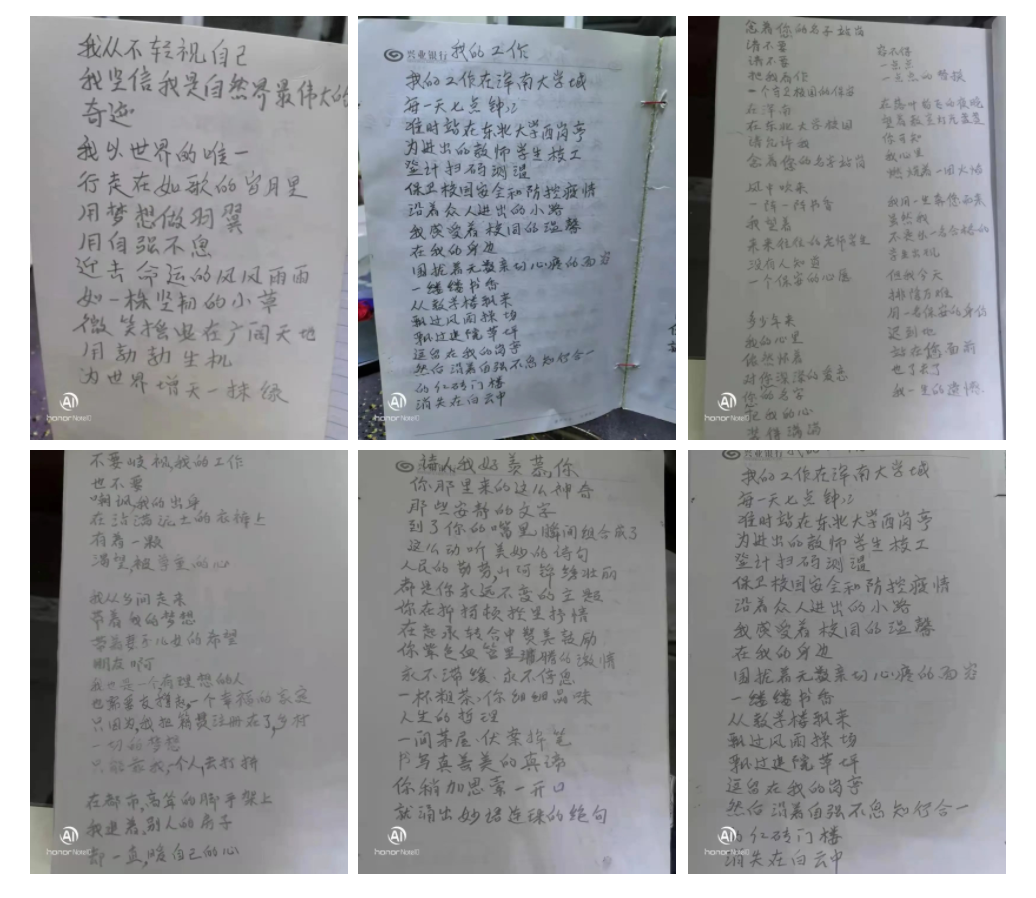 我从不轻视自己
我坚信我是自然界最伟大的
奇迹
我以世界的唯一
行走在如歌的岁月里
用梦想做羽翼
用自强不息
迎去命运的风风雨雨
如一株坚韧的小草
微笑摇曳在广阔天地
用勃勃生机
为世界增天一抹绿
AI
honor Note10
兴业银行 我的工作
我的工作在浑南大学城
每一天七点钟
准时站在东北大学西岗亭
为进出的教师学生校工
登计扫码测温
保卫校园安全和防控疫情
沿着众人进出的小路
我感受着校园的温馨
在我的身边
围拢着无数亲切心疼的面容
一缕缕书香
从教学楼飘来
飘过风雨操场
飘过进院草坪
逗留在我的岗亭
然后沿着自强不息知行合一
的红砖门楼
消失在白云中
AI
honor Note10
念着你的名字站岗
请不要
请不要
把我看作
一个守卫校园的保安
在浑南
在东北大学校园
请允许我
念着你的名字站岗
风中吹来
一阵一阵书香
我望着
来来往往的老师学生
没有人知道
一个保安的心愿
多少年来
我的心里
依然怀着
对你深深的爱恋
你的名字
把我的心
装得满满
容不得
一点点
一点点的替换
你可知
我心里
燃烧着一团火焰
虽然我
但我今天
排除万难
用一名保安的身份
迟到地
站在您面前
也了去了
我一生的遗憾
AI
honor Note10
不要歧视,我的工作
也不要
嘲讽,我的出身
在沾满泥土的衣裤上
有着一颗
渴望,被尊重的心
我从乡间走来
带着我的梦想
带着妻子儿女的希望
朋友啊
我也是一个,有理想的人
也需要支撑起,一个幸福的家庭
只因为,我把籍贯注册在了,乡村
一切的梦想
只能靠我,个人,去打拼
在都市,高耸的脚手架上
我建着,别人的房子
却一直,暖自己的心
AI
honor Note10
诗人,我好羡慕,你
你那里来的这么神奇
那些安静的文字
到了你的嘴里,瞬间组合成了
这么动听美妙的诗句
人民的勤劳,山河锦绣壮丽
都是你永远不变的主题
你在抑扬顿挫里抒情
在起承转合中赞美鼓励
你紫色血管里灌腾的激情
永不滞缓、永不停息
一杯粗茶、你细细品味
人生的哲理
一间茅屋、伏案挥笔
书写真善美的真谛
你稍加思索一开口
就涌出妙语连珠的绝句
AI
honor Note10
兴业银行
我的工作在浑南大学城
每一天七点钟
准时站在东北大学西岗亭
为进出的教师学生校工
登计扫码测温
保卫校园安全和防控疫情
沿着众人进出的小路
我感受着校园的温馨
在我的身边
围拢着无数亲切心疼的面容
一缕缕书香
从教学楼飘来
飘过风雨操场
飘过进院草坪
逗留在我的岗亭
然后沿着自强不息知行合一
的红砖门楼
消失在白云中
AI
honor Note10